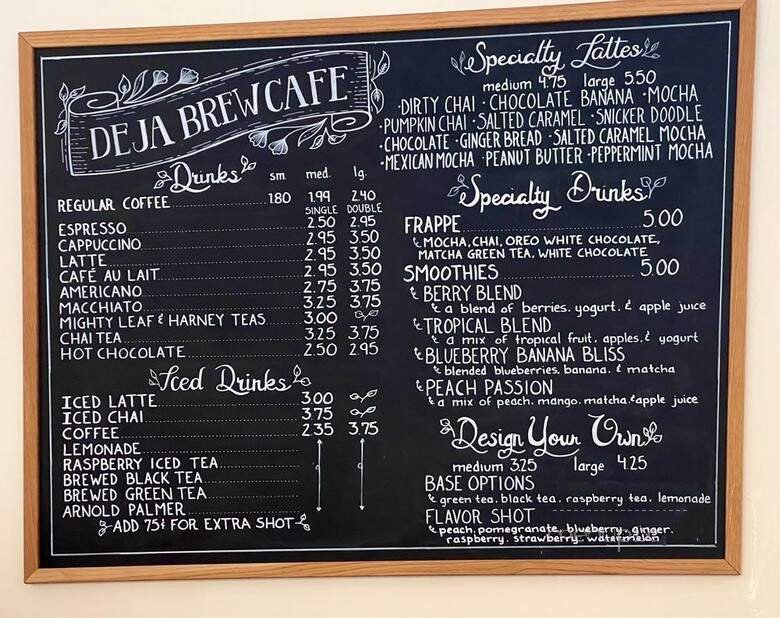 DEJA BREW CAFE
Drinks sm. med. lg.
REGULAR COFFEE 1.80 1.99 2.40
SINGLE DOUBLE
ESPRESSO 2.50 2.95
CAPPUCCINO 2.95 3.50
LATTE 2.95 3.50
CAFÉ AU LAIT 2.95 3.50
AMERICANO 2.75 3.75
MACCHIATO 3.25 3.75
MIGHTY LEAF & HARNEY TEAS 3.00
CHAI TEA 3.25 3.75
HOT CHOCOLATE 2.50 2.95
Iced Drinks
ICED LATTE 3.00
ICED CHAI 3.75
COFFEE 2.35 3.75
LEMONADE
RASPBERRY ICED TEA
BREWED BLACK TEA
BREWED GREEN TEA
ARNOLD PALMER
ADD 75¢ FOR EXTRA SHOT
Specialty Lattes
medium 4.75 large 5.50
·DIRTY CHAI ·CHOCOLATE BANANA ·MOCHA
·PUMPKIN CHAI ·SALTED CARAMEL ·SNICKER DOODLE
·CHOCOLATE ·GINGER BREAD ·SALTED CARAMEL MOCHA
·MEXICAN MOCHA ·PEANUT BUTTER ·PEPPERMINT MOCHA
Specialty Drinks
FRAPPE 5.00
MOCHA, CHAI, OREO WHITE CHOCOLATE,
MATCHA GREEN TEA, WHITE CHOCOLATE
SMOOTHIES 5.00
BERRY BLEND
a blend of berries, yogurt, & apple juice
TROPICAL BLEND
a mix of tropical fruit, apples, & yogurt
BLUEBERRY BANANA BLISS
blended blueberries, banana, & matcha
PEACH PASSION
a mix of peach, mango, matcha, & apple juice
Design Your Own
medium 3.25 large 4.25
BASE OPTIONS
green tea, black tea, raspberry tea, lemonade
FLAVOR SHOT
peach, pomegranate, blueberry, ginger,
raspberry, strawberry, watermelon